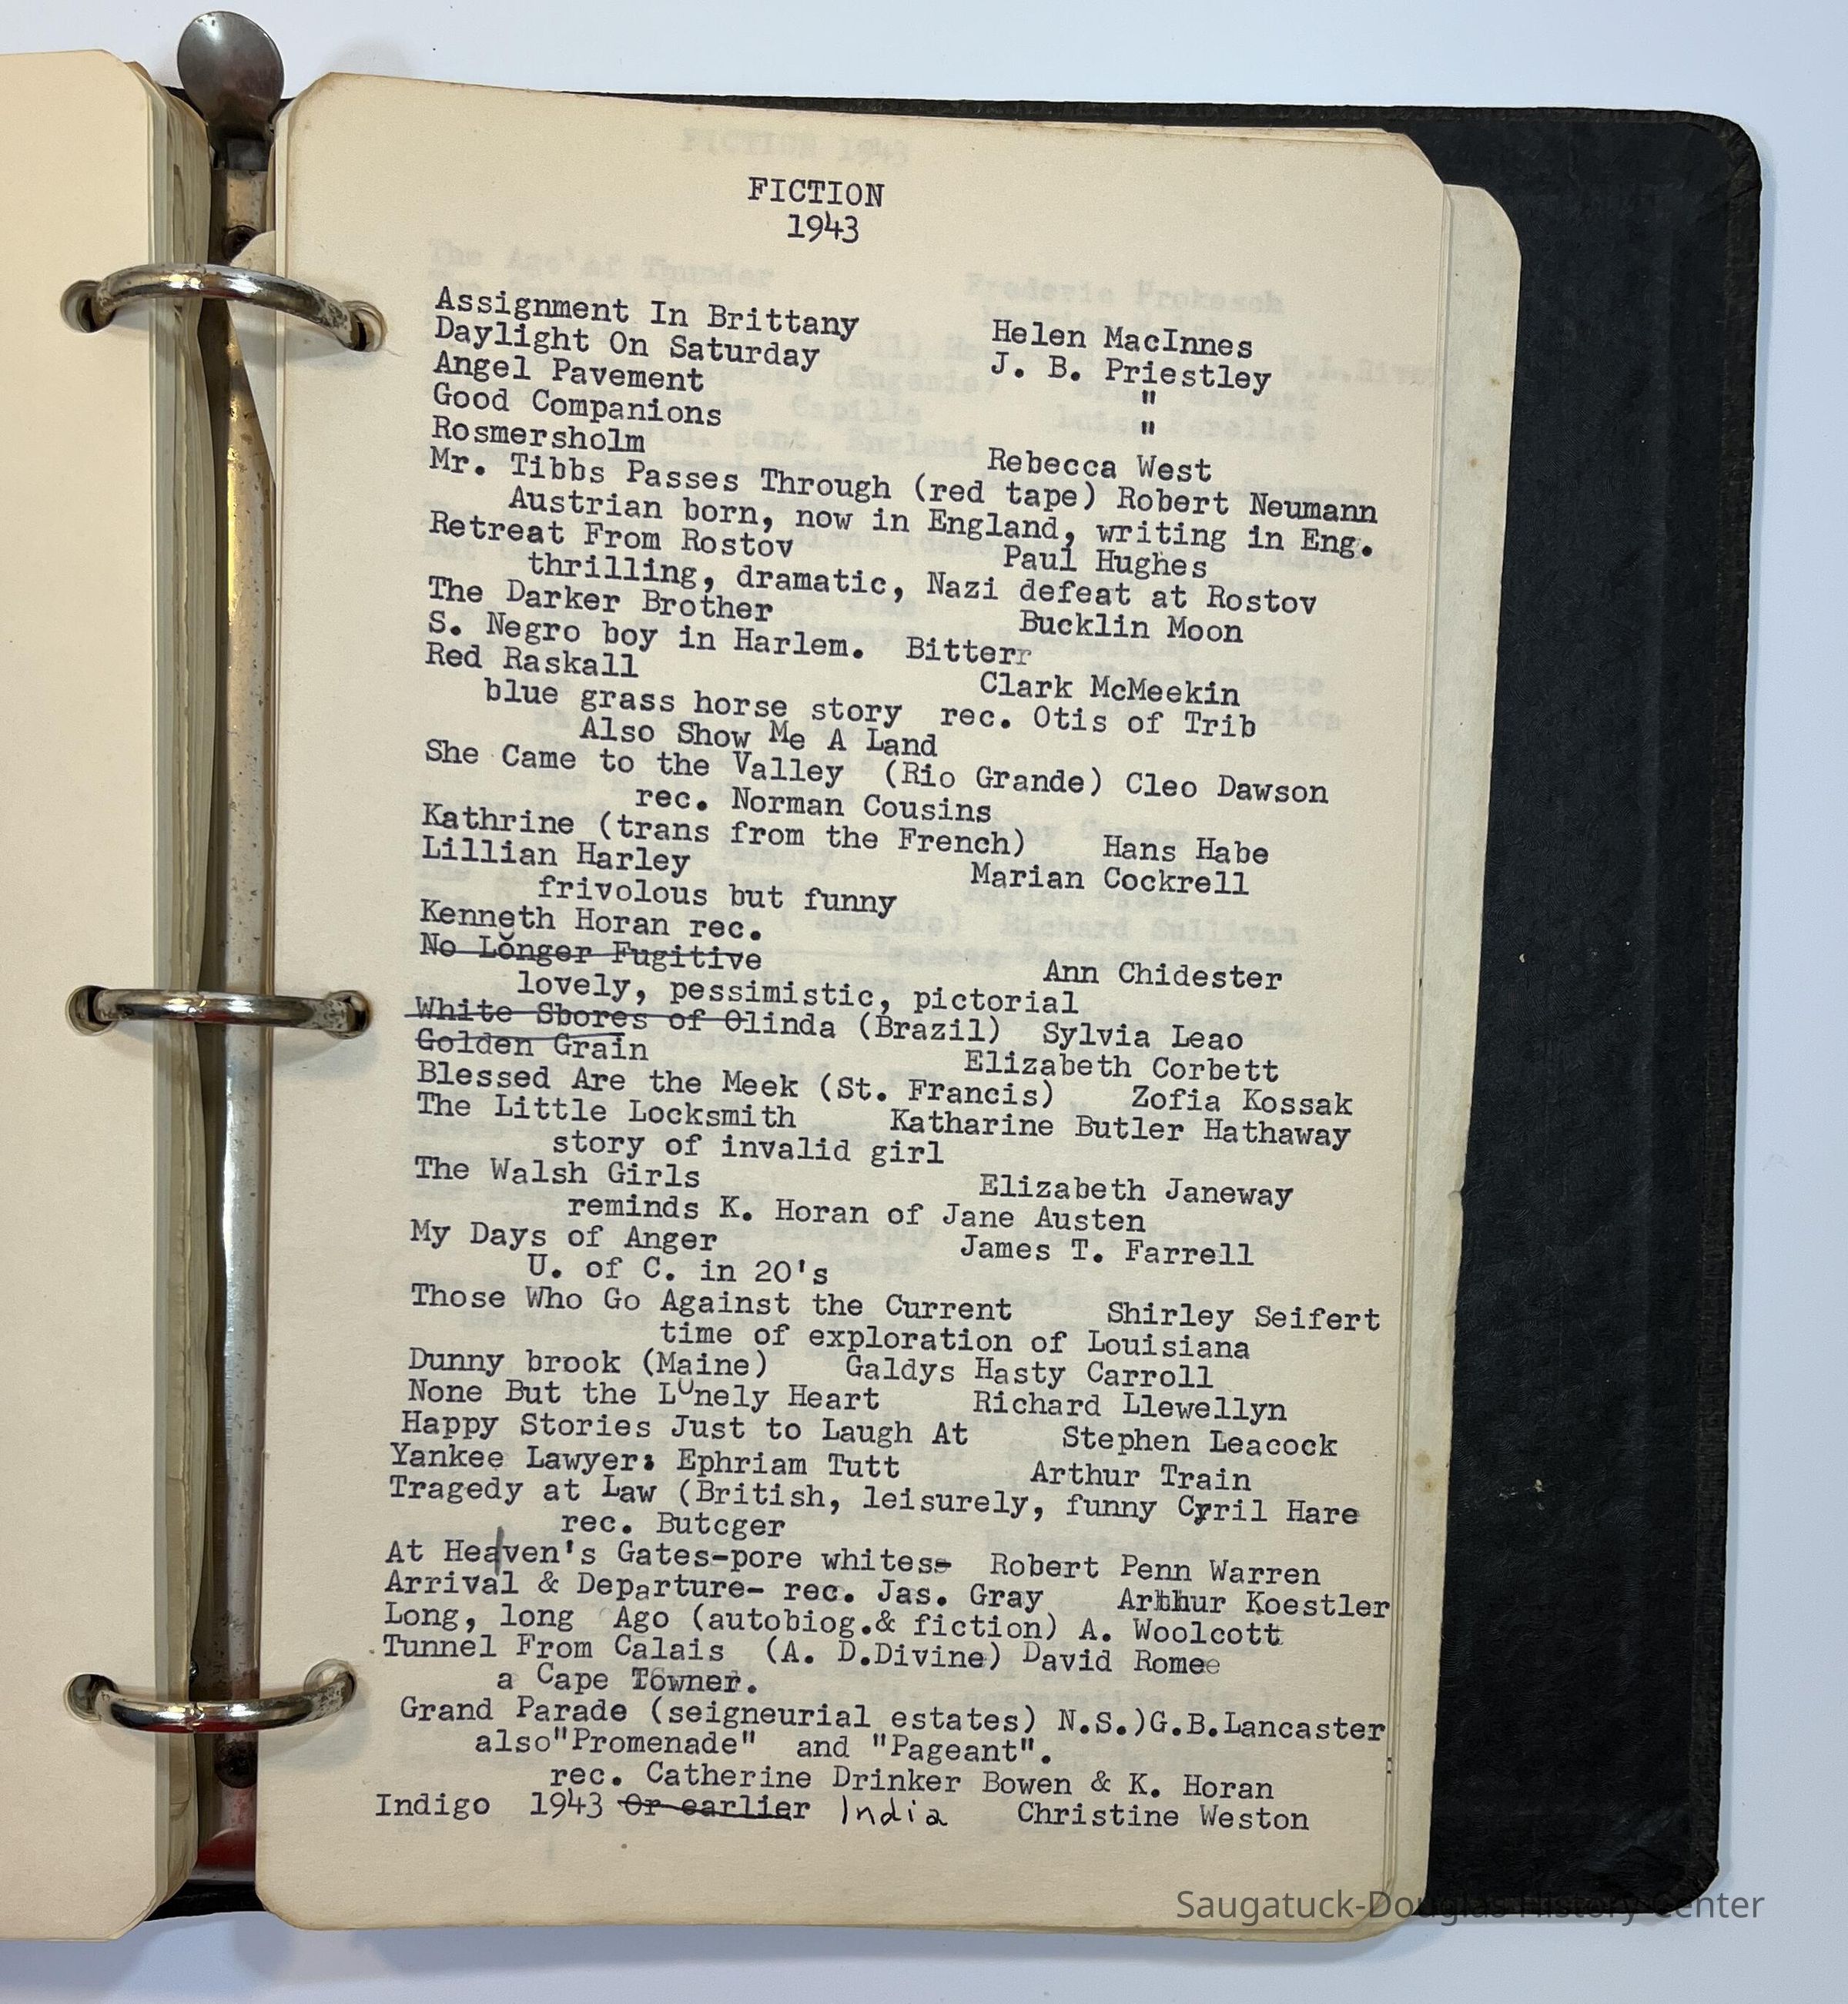 FICTION
1943
Assignment In Brittany Helen MacInnes
Daylight On Saturday J. B. Priestley
Angel Pavement "
Good Companions "
Rosmersholm Rebecca West
Mr. Tibbs Passes Through (red tape) Robert Neumann
Austrian born, now in England, writing in Eng.
Retreat From Rostov Paul Hughes
thrilling, dramatic, Nazi defeat at Rostov
The Darker Brother Bucklin Moon
S. Negro boy in Harlem. Bitterr
Red Raskall Clark McMeekin
blue grass horse story rec. Otis of Trib
Also Show Me A Land
She Came to the Valley (Rio Grande) Cleo Dawson
rec. Norman Cousins
Kathrine (trans from the French) Hans Habe
Lillian Harley Marian Cockrell
frivolous but funny
Kenneth Horan rec.
No Longer Fugitive Ann Chidester
lovely, pessimistic, pictorial
White Sbores of Olinda (Brazil) Sylvia Leao
Golden Grain Elizabeth Corbett
Blessed Are the Meek (St. Francis) Zofia Kossak
The Little Locksmith Katharine Butler Hathaway
story of invalid girl
The Walsh Girls Elizabeth Janeway
reminds K. Horan of Jane Austen
My Days of Anger James T. Farrell
U. of C. in 20's
Those Who Go Against the Current Shirley Seifert
time of exploration of Louisiana
Dunny brook (Maine) Galdys Hasty Carroll
None But the Lonely Heart Richard Llewellyn
Happy Stories Just to Laugh At Stephen Leacock
Yankee Lawyer: Ephriam Tutt Arthur Train
Tragedy at Law (British, leisurely, funny Cyril Hare
rec. Butcger
At Heaven's Gates-pore whites- Robert Penn Warren
Arrival & Departure- rec. Jas. Gray Arthur Koestler
Long, long Ago (autobiog.& fiction) A. Woolcott
Tunnel From Calais (A. D.Divine) David Romee
a Cape Towner.
Grand Parade (seigneurial estates) N.S.)G.B.Lancaster
also"Promenade" and "Pageant".
rec. Catherine Drinker Bowen & K. Horan
Indigo 1943 Or earlier India Christine Weston
Saugatuck-Douglas History Center